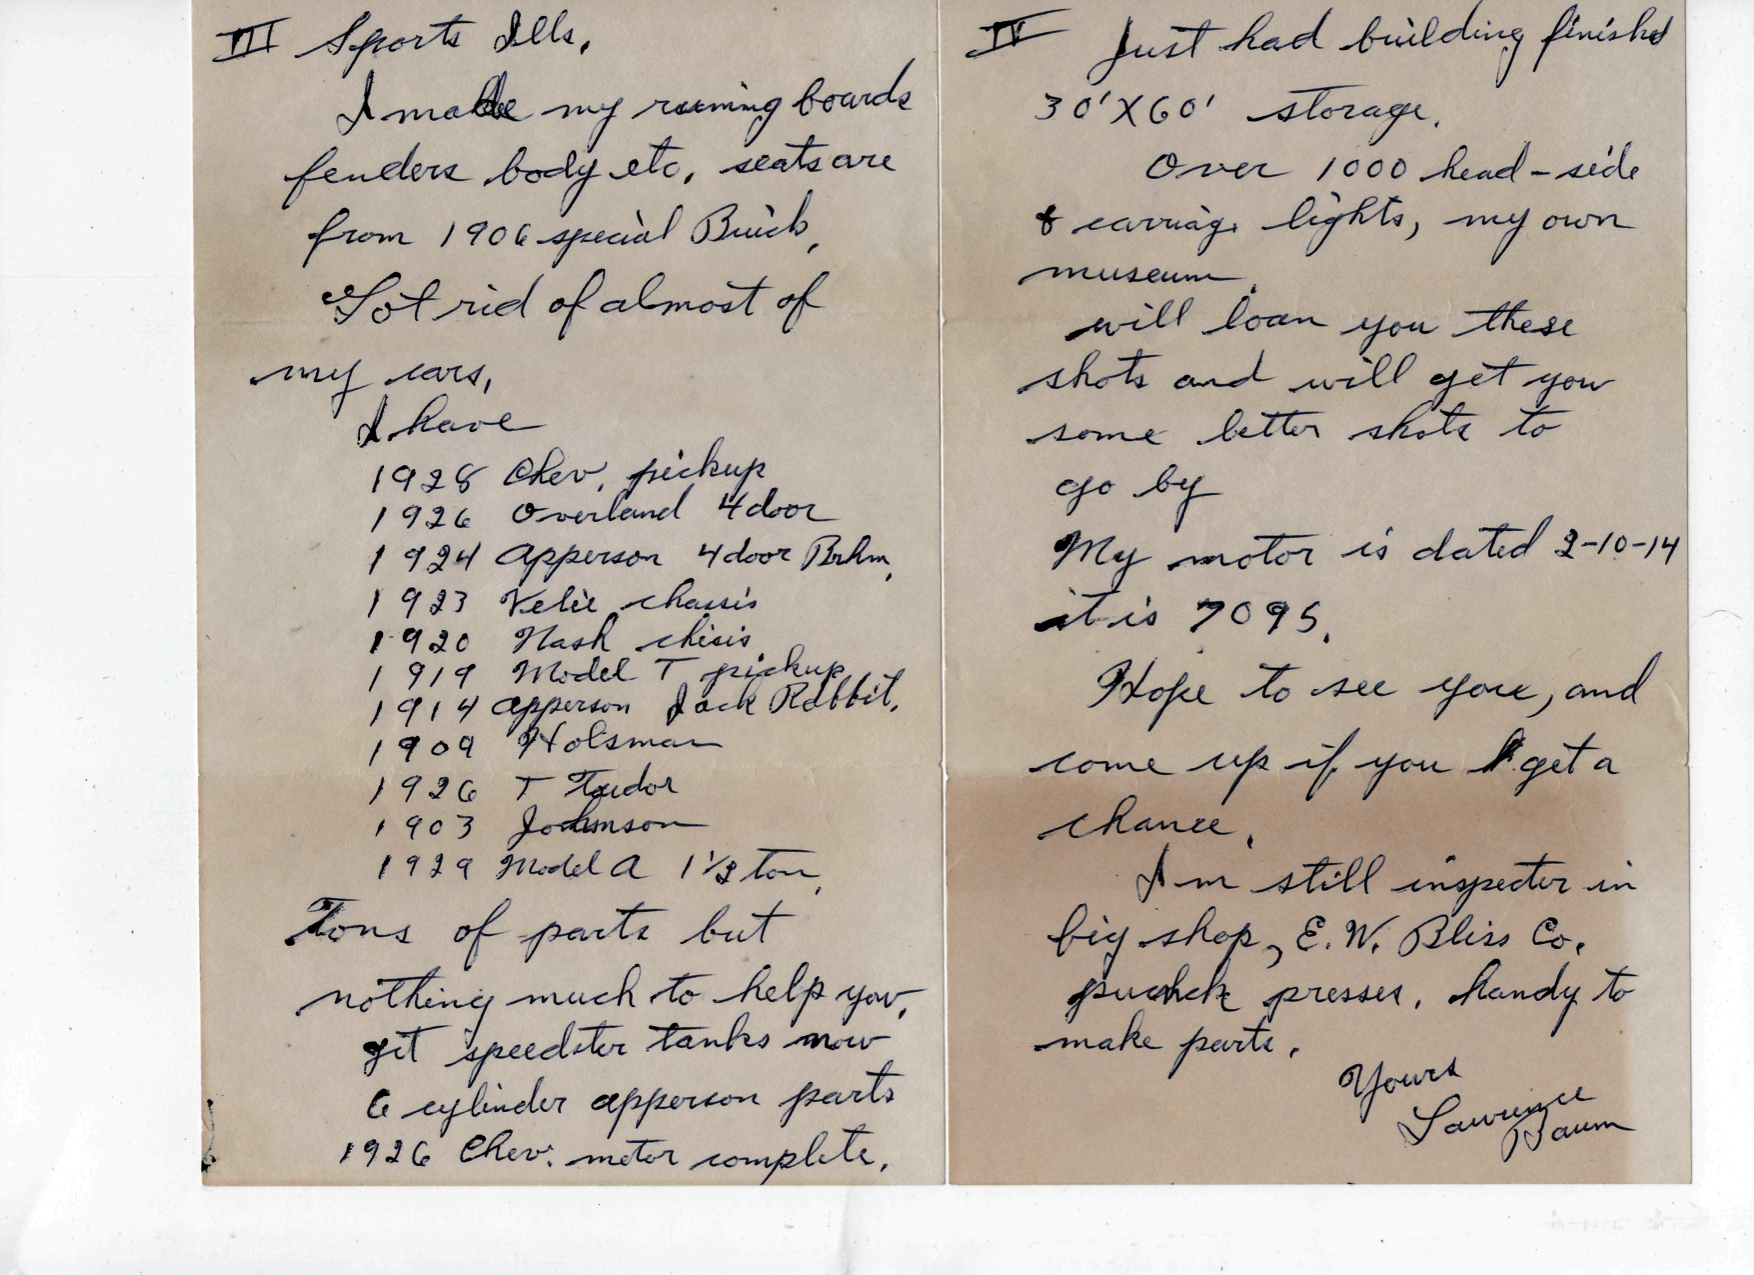 III Sports Ills.
I made my running boards
fenders body etc, seats are
from 1906 special Buick,
Got rid of almost of
my cars,
I have
1928 Chev. pickup
1926 Overland 4 door
1924 Apperson 4 door Brhm,
1923 Velie chassis
1920 Nash chisis
1919 Model T pickup
1914 Apperson Jack Rabbit,
1909 Holsman
1926 T Tudor
1903 Johnson
1929 Model A 1 1/2 ton,
Tons of parts but
nothing much to help you,
git speedster tanks now
6 cylinder apperson parts
1926 Chev. motor complete,
IV Just had building finished
30' X 60' storage.
Over 1000 head - side
& carriag. lights, my own
museum.
will loan you these
shots and will get you
some better shots to
go by
My motor is dated 2-10-14
it is 7095.
Hope to see you, and
come up if you get a
chance,
I m still inspector in
big shop, E. W. Bliss Co.
presses, handy to
make parts.
Yours
Lawrence
Baum